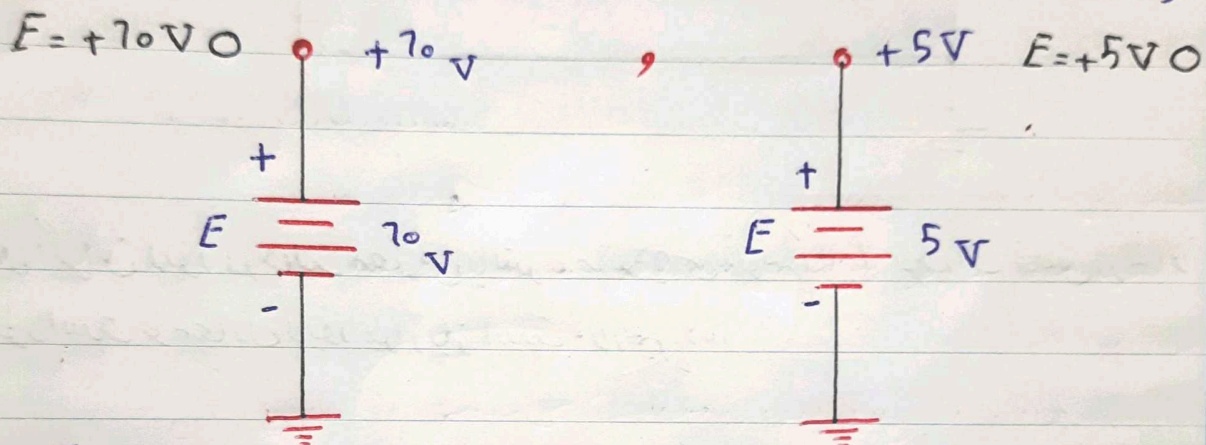 E=+10V O +10V , +5V E=+5V O
+ +
E 10V E 5V
- -